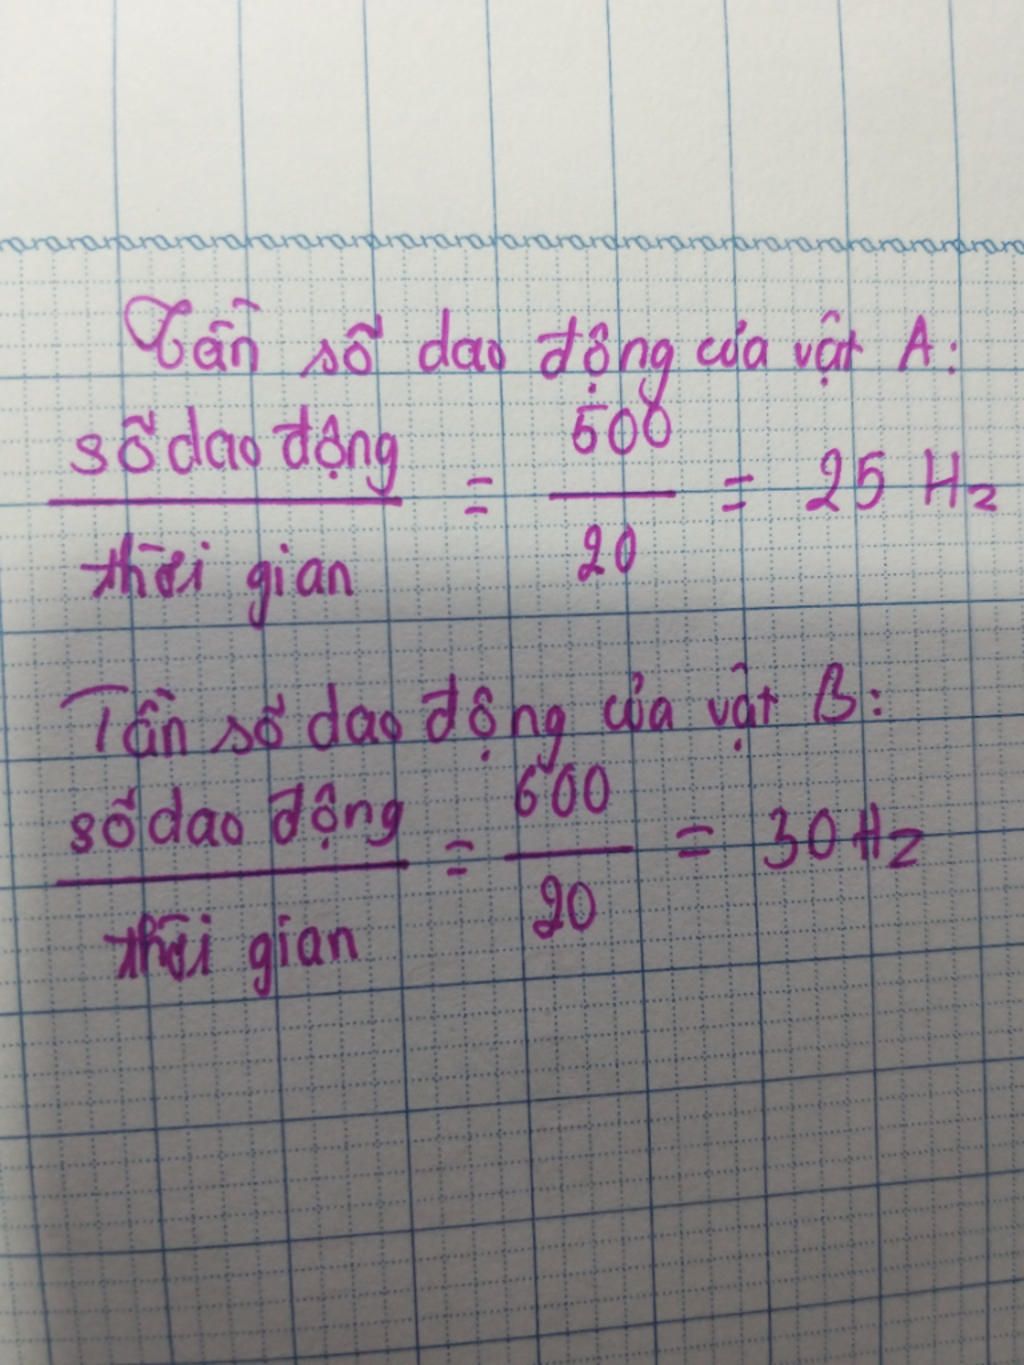 Tần số dao động của vật A:
số dao động / thời gian = 500 / 20 = 25 Hz
Tần số dao động của vật B:
số dao động / thời gian = 600 / 20 = 30 Hz